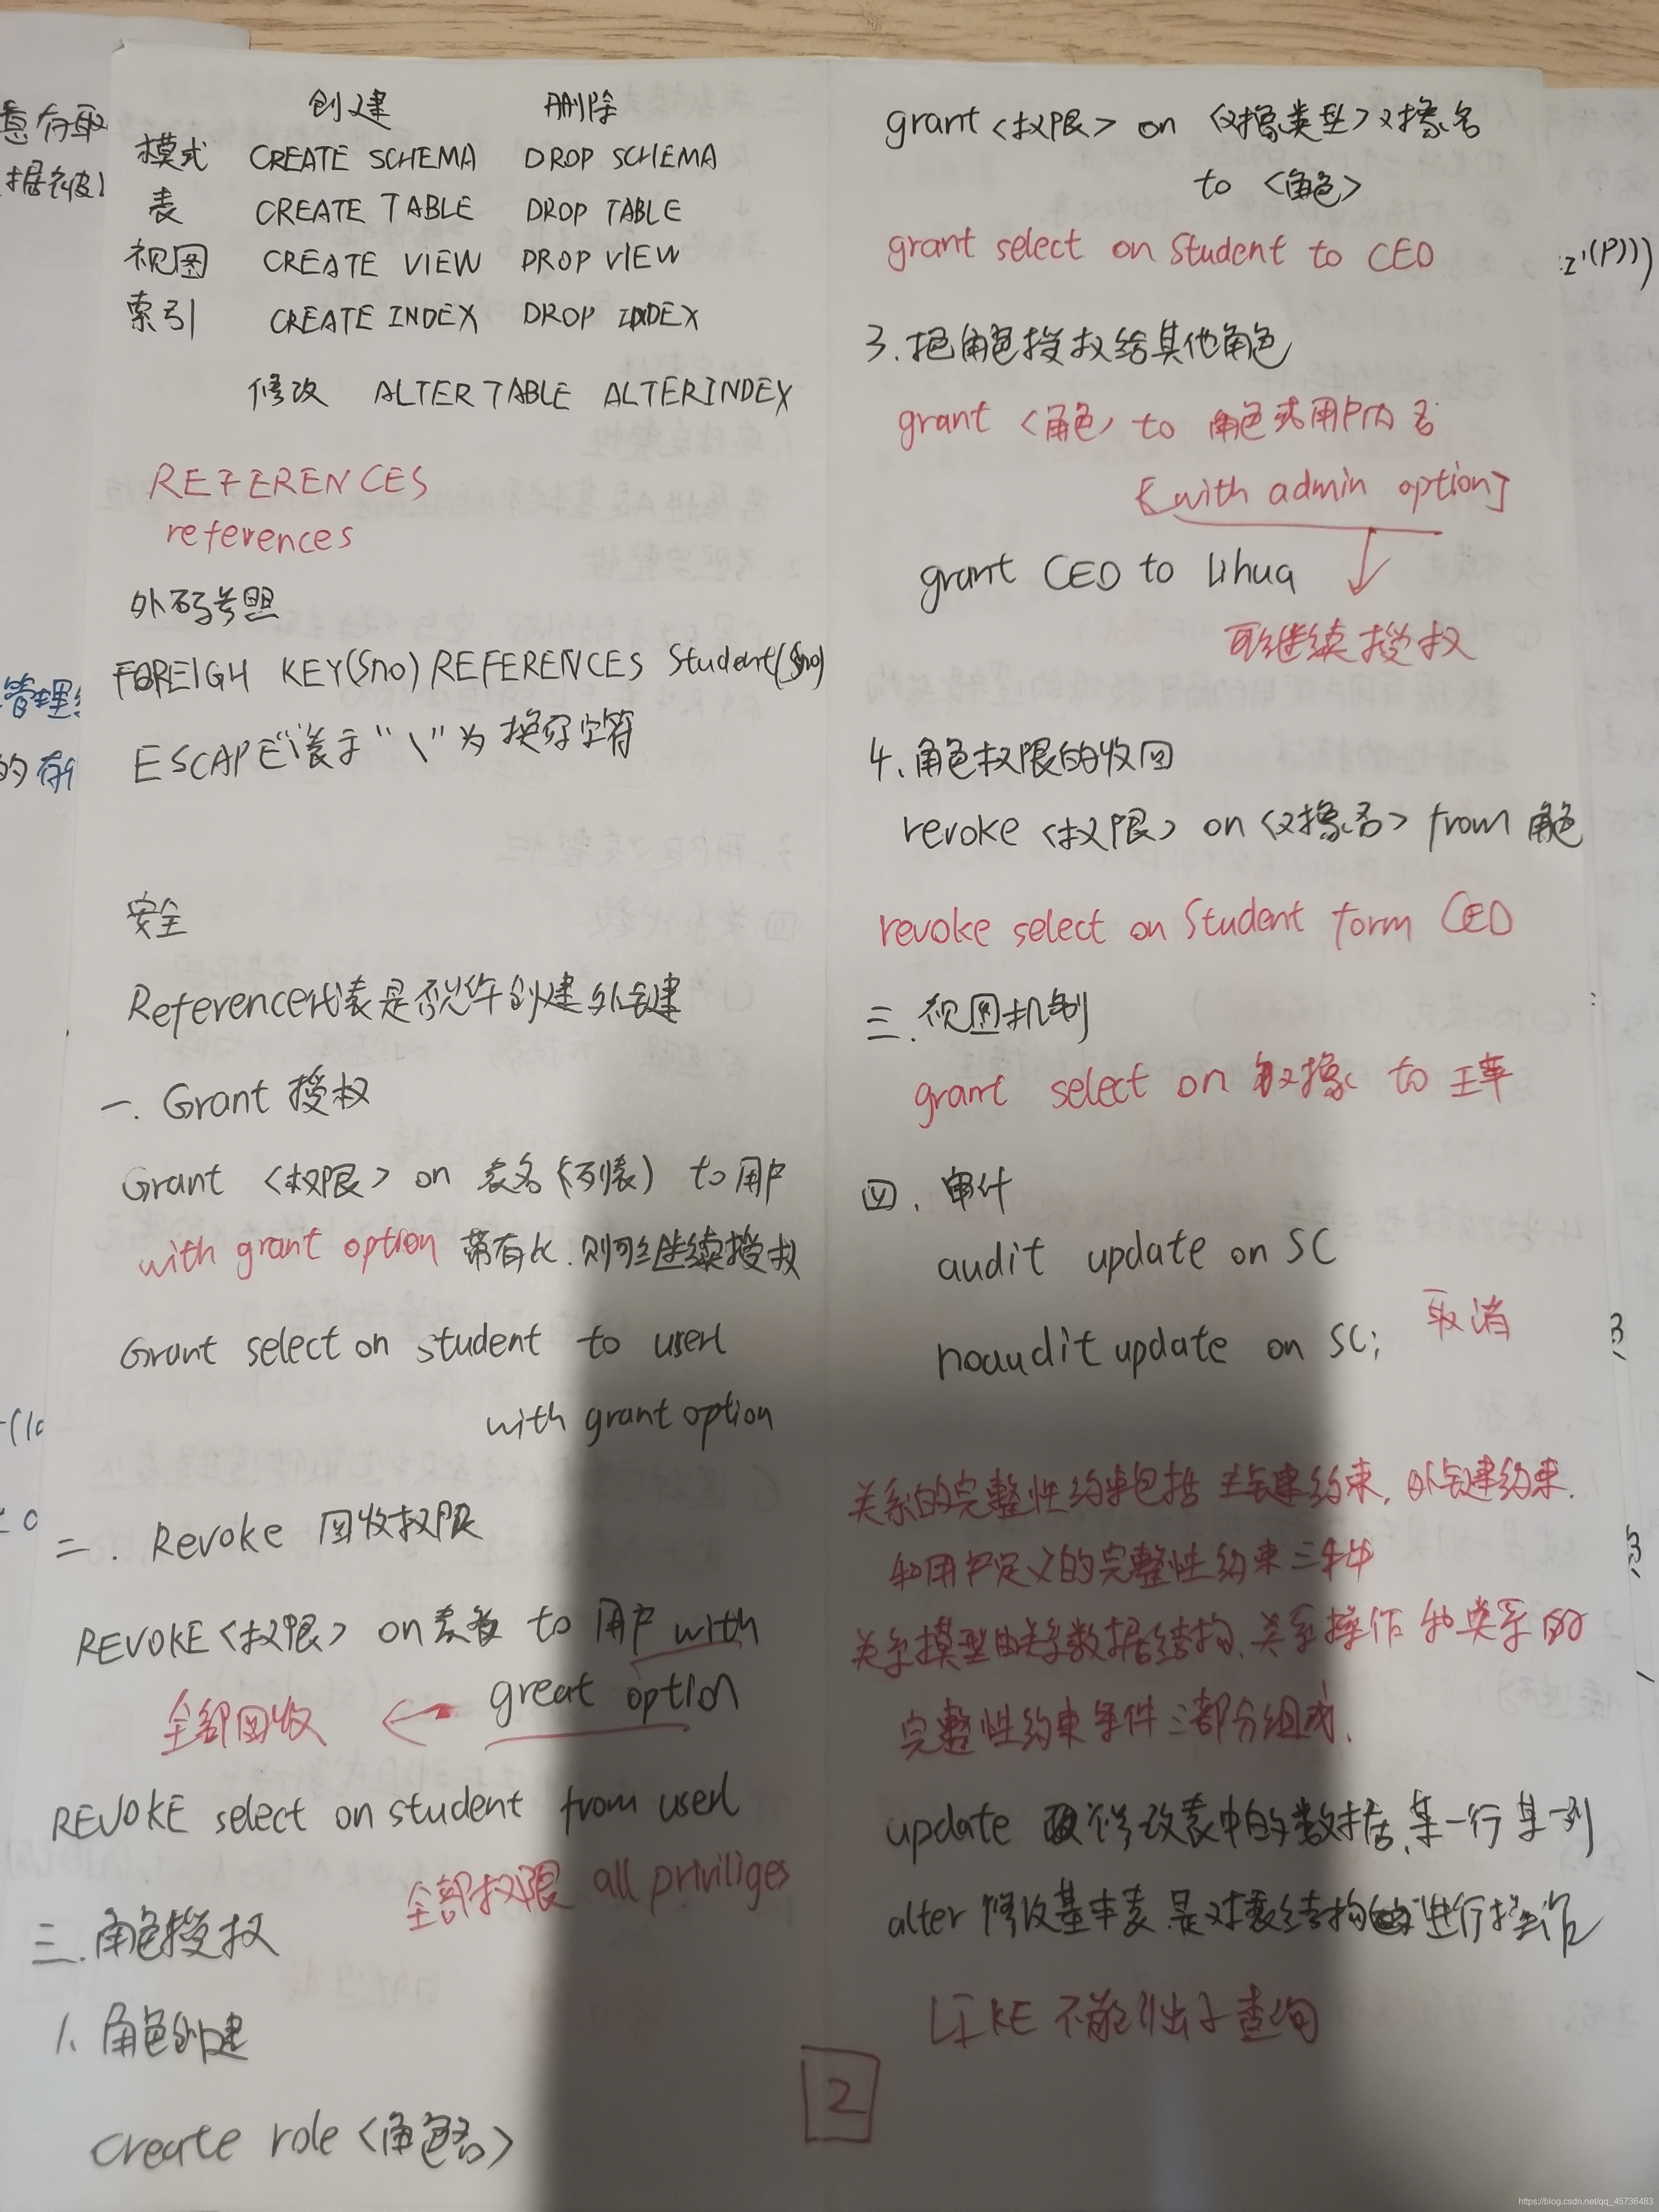 创建 删除
模式 CREATE SCHEMA DROP SCHEMA
表 CREATE TABLE DROP TABLE
视图 CREATE VIEW DROP VIEW
索引 CREATE INDEX DROP INDEX
修改 ALTER TABLE ALTER INDEX
REFERENCES
references
外码参照
FOREIGH KEY(Sno) REFERENCES Student(Sno)
ESCAPE'\'表示"\"为换码字符
安全
Reference代表是否允许创建外键
一. Grant 授权
Grant <权限> on 表名(列表) to 用户
with grant option 带有此.则可继续授权
Grant select on student to user1
with grant option
二. Revoke 回收权限
REVOKE <权限> on 表名 to 用户 with
great option
全部回收
REVOKE select on student from user1
全部权限 all priviliges
三.角色授权
1. 角色创建
create role <角色名>
grant <权限> on <对象类型>对象名
to <角色>
grant select on Student to CEO
3.把角色授权给其他角色
grant <角色> to 角色或用户名
[with admin option]
grant CEO to lihua
可继续授权
4.角色权限的收回
revoke <权限> on <对象名> from 角色
revoke select on Student form CEO
三.视图机制
grant select on 对象 to 王苹
四. 审计
audit update on SC
取消
noaudit update on SC;
关系的完整性约束包括 主键约束, 外键约束.
和用户定义的完整性约束三种
关系模型由关系数据结构、关系操作和关系的
完整性约束条件三部分组成.
update 修改表中的数据.某一行某一列
alter 修改基本表 是对表结构进行操作
LIKE 不能引出子查询
2
意存取
据被
管理
的存
z'(P)))
https://blog.csdn.net/qq_45736483